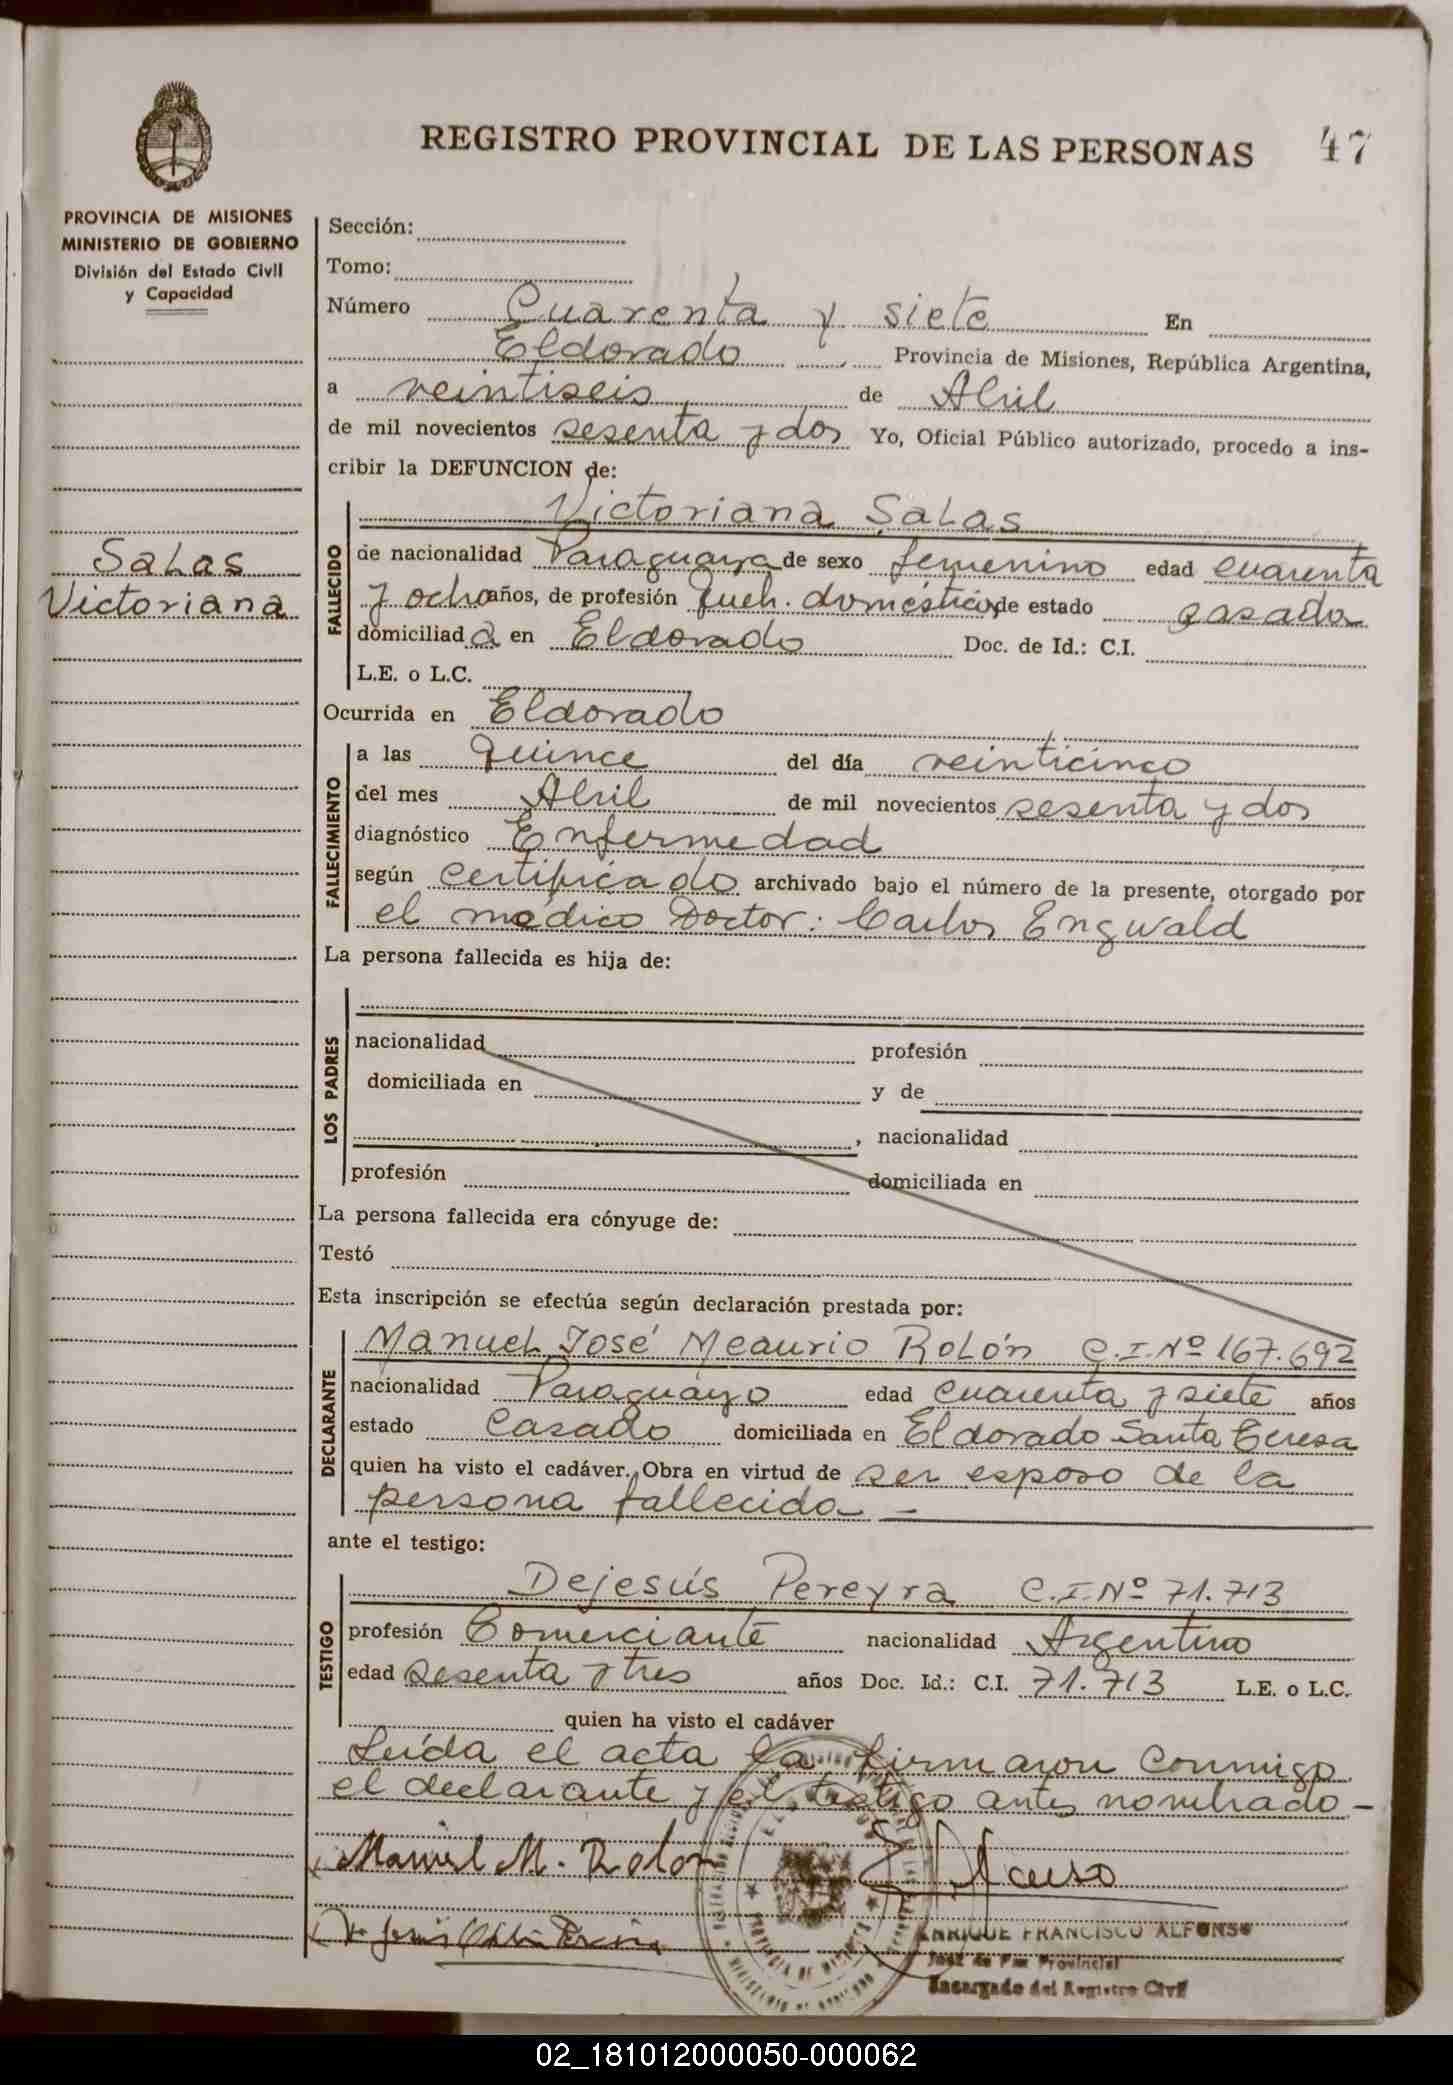 REGISTRO PROVINCIAL DE LAS PERSONAS 47
PROVINCIA DE MISIONES
MINISTERIO DE GOBIERNO
División del Estado Civil
y Capacidad
Salas
Victoriana
Sección:
Tomo:
Número Cuarenta y siete En
Eldorado Provincia de Misiones, República Argentina,
a veintiseis de Abril
de mil novecientos sesenta y dos Yo, Oficial Público autorizado, procedo a ins-
cribir la DEFUNCION de:
FALLECIDO
Victoriana Salas
de nacionalidad Paraguaya de sexo femenino edad cuarenta
y ocho años, de profesión Queh. domésticos de estado casada
domiciliad a en Eldorado Doc. de Id.: C.I.
L.E. o L.C.
Ocurrida en Eldorado
FALLECIMIENTO
a las quince del día veinticinco
del mes Abril de mil novecientos sesenta y dos
diagnóstico Enfermedad
según certificado archivado bajo el número de la presente, otorgado por
el médico Doctor: Carlos Engwald
La persona fallecida es hija de:
LOS PADRES
nacionalidad profesión
domiciliada en y de
, nacionalidad
profesión domiciliada en
La persona fallecida era cónyuge de:
Testó
Esta inscripción se efectúa según declaración prestada por:
DECLARANTE
Manuel José Meaurio Rolón C.I.Nº 167.692
nacionalidad Paraguayo edad cuarenta y siete años
estado casado domiciliada en Eldorado Santa Teresa
quien ha visto el cadáver. Obra en virtud de ser esposo de la
persona fallecida -
ante el testigo:
TESTIGO
Dejesús Pereyra C.I.Nº 71.713
profesión Comerciante nacionalidad Argentino
edad sesenta y tres años Doc. Id.: C.I. 71.713 L.E. o L.C.
quien ha visto el cadáver
Leída el acta la firmaron conmigo
el declarante y el testigo antes nombrado -
Manuel M. Rolon
PROVINCIA DE MISIONES
ENRIQUE FRANCISCO ALFONSO
Juez de Paz Provincial
Encargado del Registro Civil
02_181012000050-000062